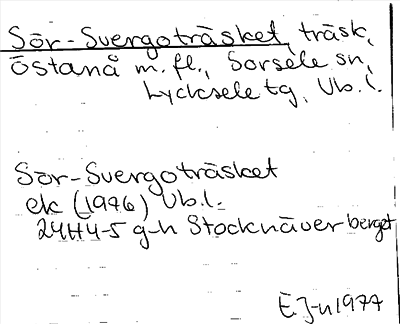 Sör-Svergoträsket, träsk,
Östanå m.fl., Sorsele sn,
Lycksele tg, Vb.l.
Sör-Svergoträsket
ek (1976) Vb.l.
24H4-5 g-h Stocknäverberget
EJ-n 1977